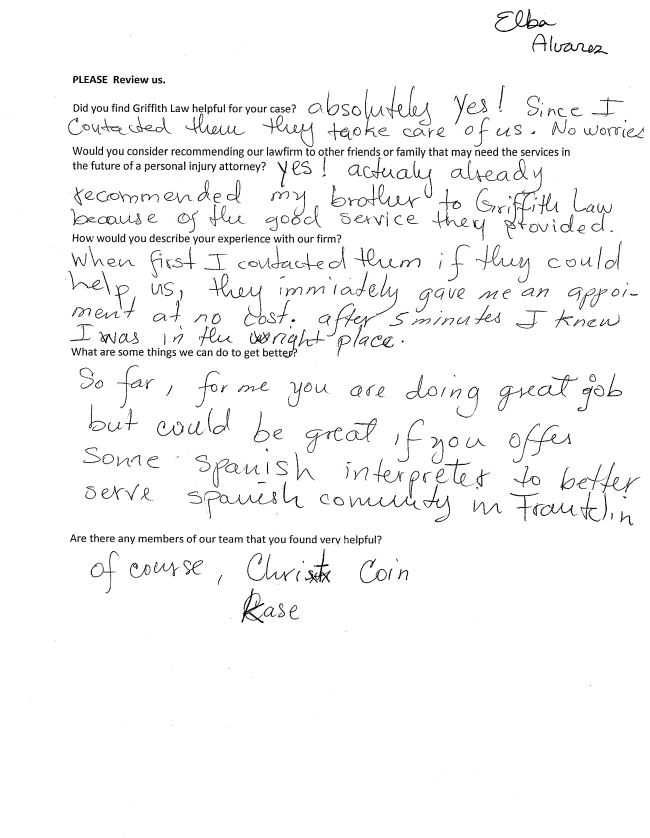 Elba
Alvarez
PLEASE Review us.
Did you find Griffith Law helpful for your case? absolutely yes! Since I
Contacted them they tooke care of us. No worries
Would you consider recommending our lawfirm to other friends or family that may need the services in
the future of a personal injury attorney? yes! actualy already
recommended my brother to Griffith Law
because of the good service they provided.
How would you describe your experience with our firm?
When first I contacted them if they could
help us, they immiately gave me an appoi-
ment at no cost. after 5 minutes I knew
I was in the wright place.
What are some things we can do to get better?
So far, for me you are doing great job
but could be great if you offer
Some spanish interpreter to better
serve spanish comunity in Franklin
Are there any members of our team that you found very helpful?
of course, Christ Coin
Rase